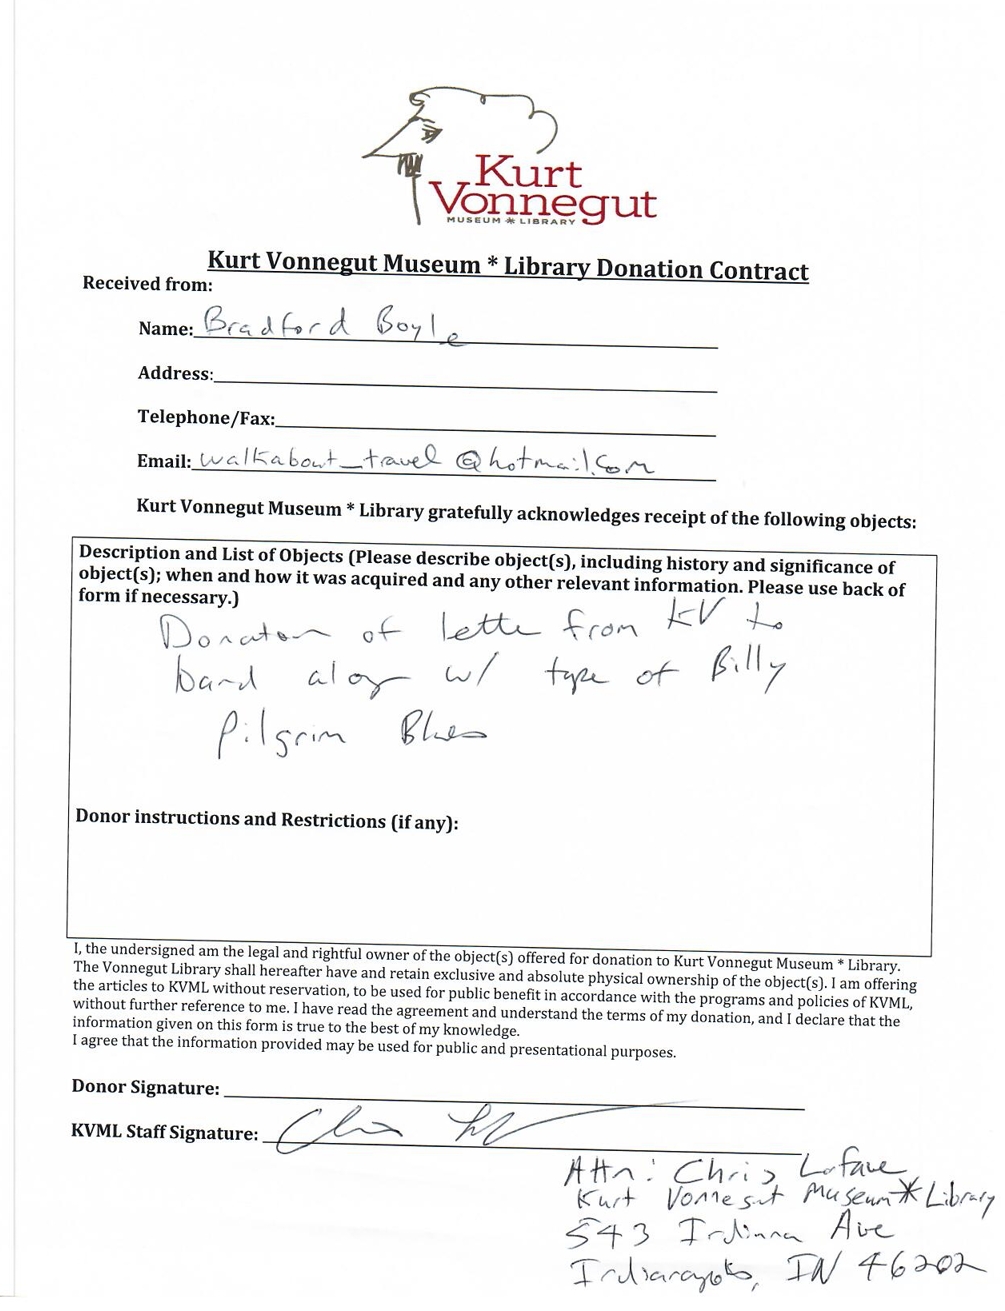 Kurt
Vonnegut
MUSEUM * LIBRARY
Kurt Vonnegut Museum * Library Donation Contract
Received from:
Name: Bradford Boyle
Address:
Telephone/Fax:
Email: walkabout_travel @hotmail.com
Kurt Vonnegut Museum * Library gratefully acknowledges receipt of the following objects:
Description and List of Objects (Please describe object(s), including history and significance of
object(s); when and how it was acquired and any other relevant information. Please use back of
form if necessary.)
Donation of letter from KV to
band along w/ type of Billy
Pilgrim Blues
Donor instructions and Restrictions (if any):
I, the undersigned am the legal and rightful owner of the object(s) offered for donation to Kurt Vonnegut Museum * Library.
The Vonnegut Library shall hereafter have and retain exclusive and absolute physical ownership of the object(s). I am offering
the articles to KVML without reservation, to be used for public benefit in accordance with the programs and policies of KVML,
without further reference to me. I have read the agreement and understand the terms of my donation, and I declare that the
information given on this form is true to the best of my knowledge.
I agree that the information provided may be used for public and presentational purposes.
Donor Signature:
KVML Staff Signature:
Attn: Chris Lafave
Kurt Vonnegut Museum * Library
543 Indiana Ave
Indianapolis, IN 46202